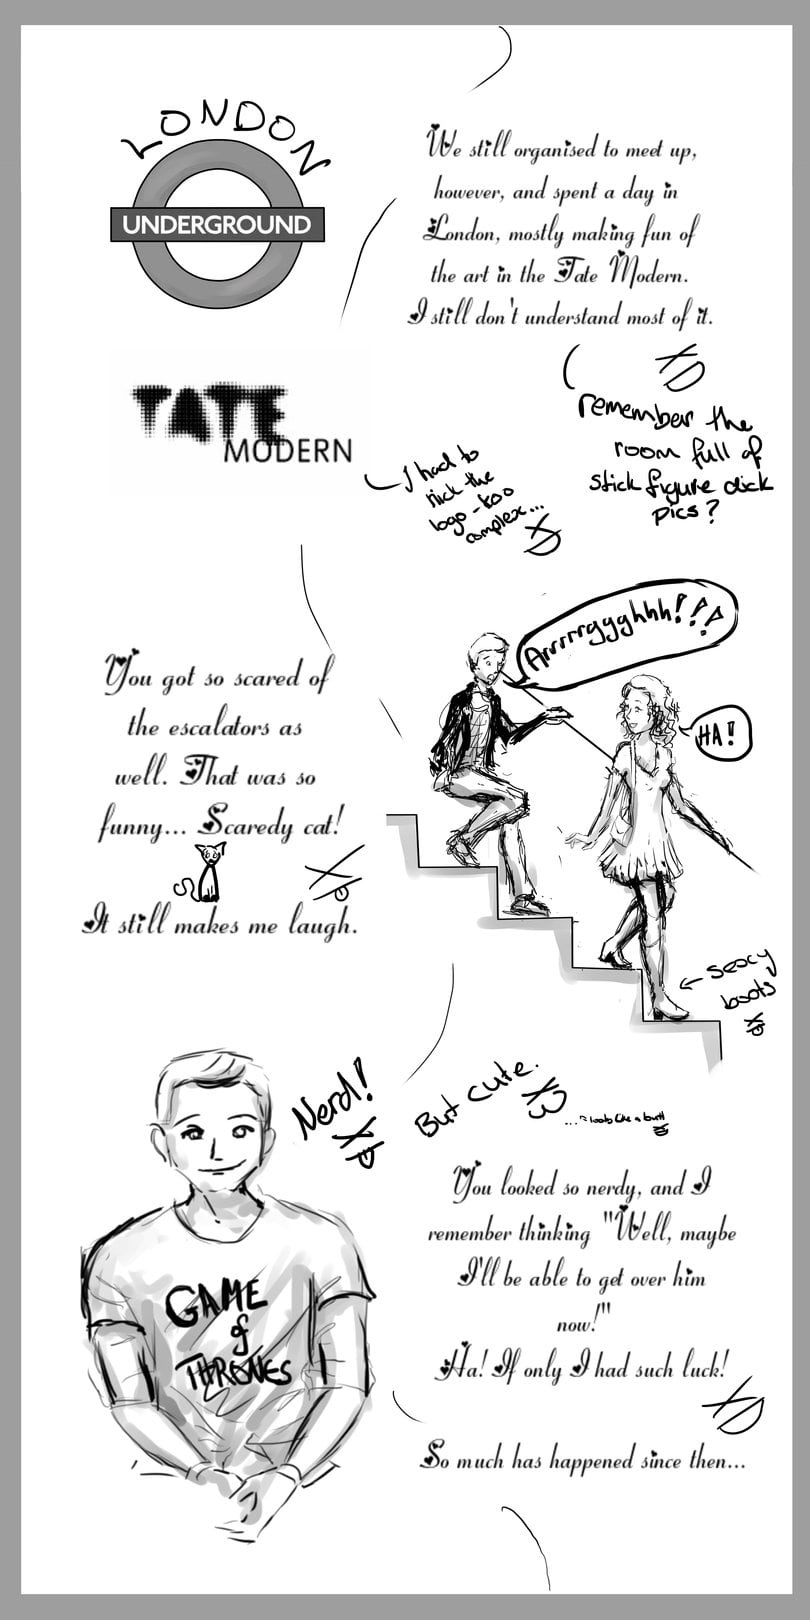 LONDON
UNDERGROUND
We still organised to meet up,
however, and spent a day in
London, mostly making fun of
the art in the Tate Modern.
I still don't understand most of it.
XD
remember the
room full of
stick figure dick
pics?
TATE
MODERN
I had to
nick the
logo - too
complex...
XD
You got so scared of
the escalators as
well. That was so
funny... Scaredy cat!
XP
It still makes me laugh.
Arrrrrggghhh!!!
HA!
← sexy
boots
XP
Nerd!
XP
But cute.
X3
...looks like a butt
GAME
of
THRONES
You looked so nerdy, and I
remember thinking "Well, maybe
I'll be able to get over him
now!"
Ha! If only I had such luck!
XD
So much has happened since then...